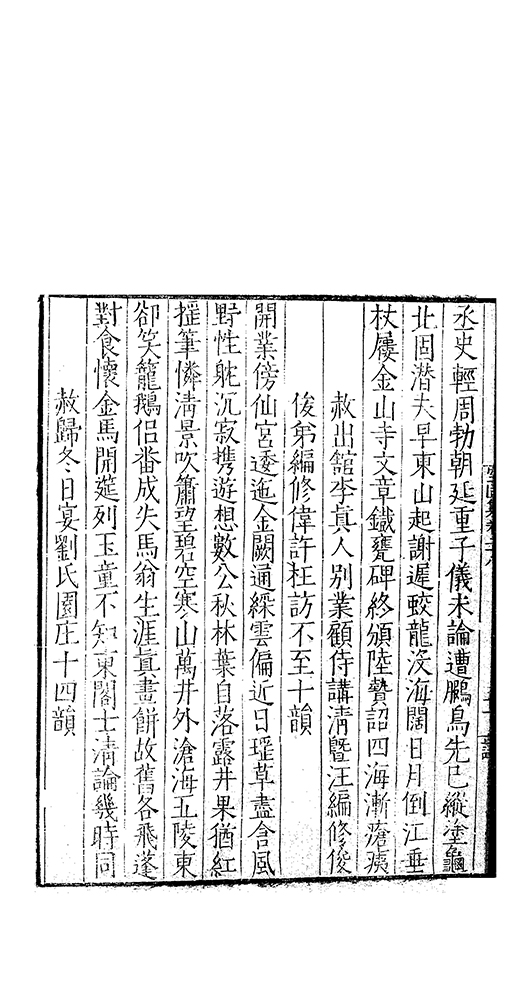 丞史輕周勃朝廷重子儀未論遭鵩鳥先已縱塗龜
北固潛夫早東山起謝遲蛟龍沒海闊日月倒江垂
杖屨金山寺文章鐵甕碑終頒陸贄詔四海漸瘡痍
赦出館李真人別業顧侍講清曁汪編修俊
俊第編修偉許枉訪不至十韻
開業傍仙宮逶迤金闕通綵雲偏近日瑤草盡含風
野性躭沉寂携遊想數公秋林葉自落露井果猶紅
援筆憐清景吹簫望碧空寒山萬井外滄海五陵東
卻笑籠鵝侣番成失馬翁生涯真畫餅故舊各飛蓬
對食懷金馬開筵列玉童不知東閣士清論幾時同
赦歸冬日宴劉氏園庄十四韻